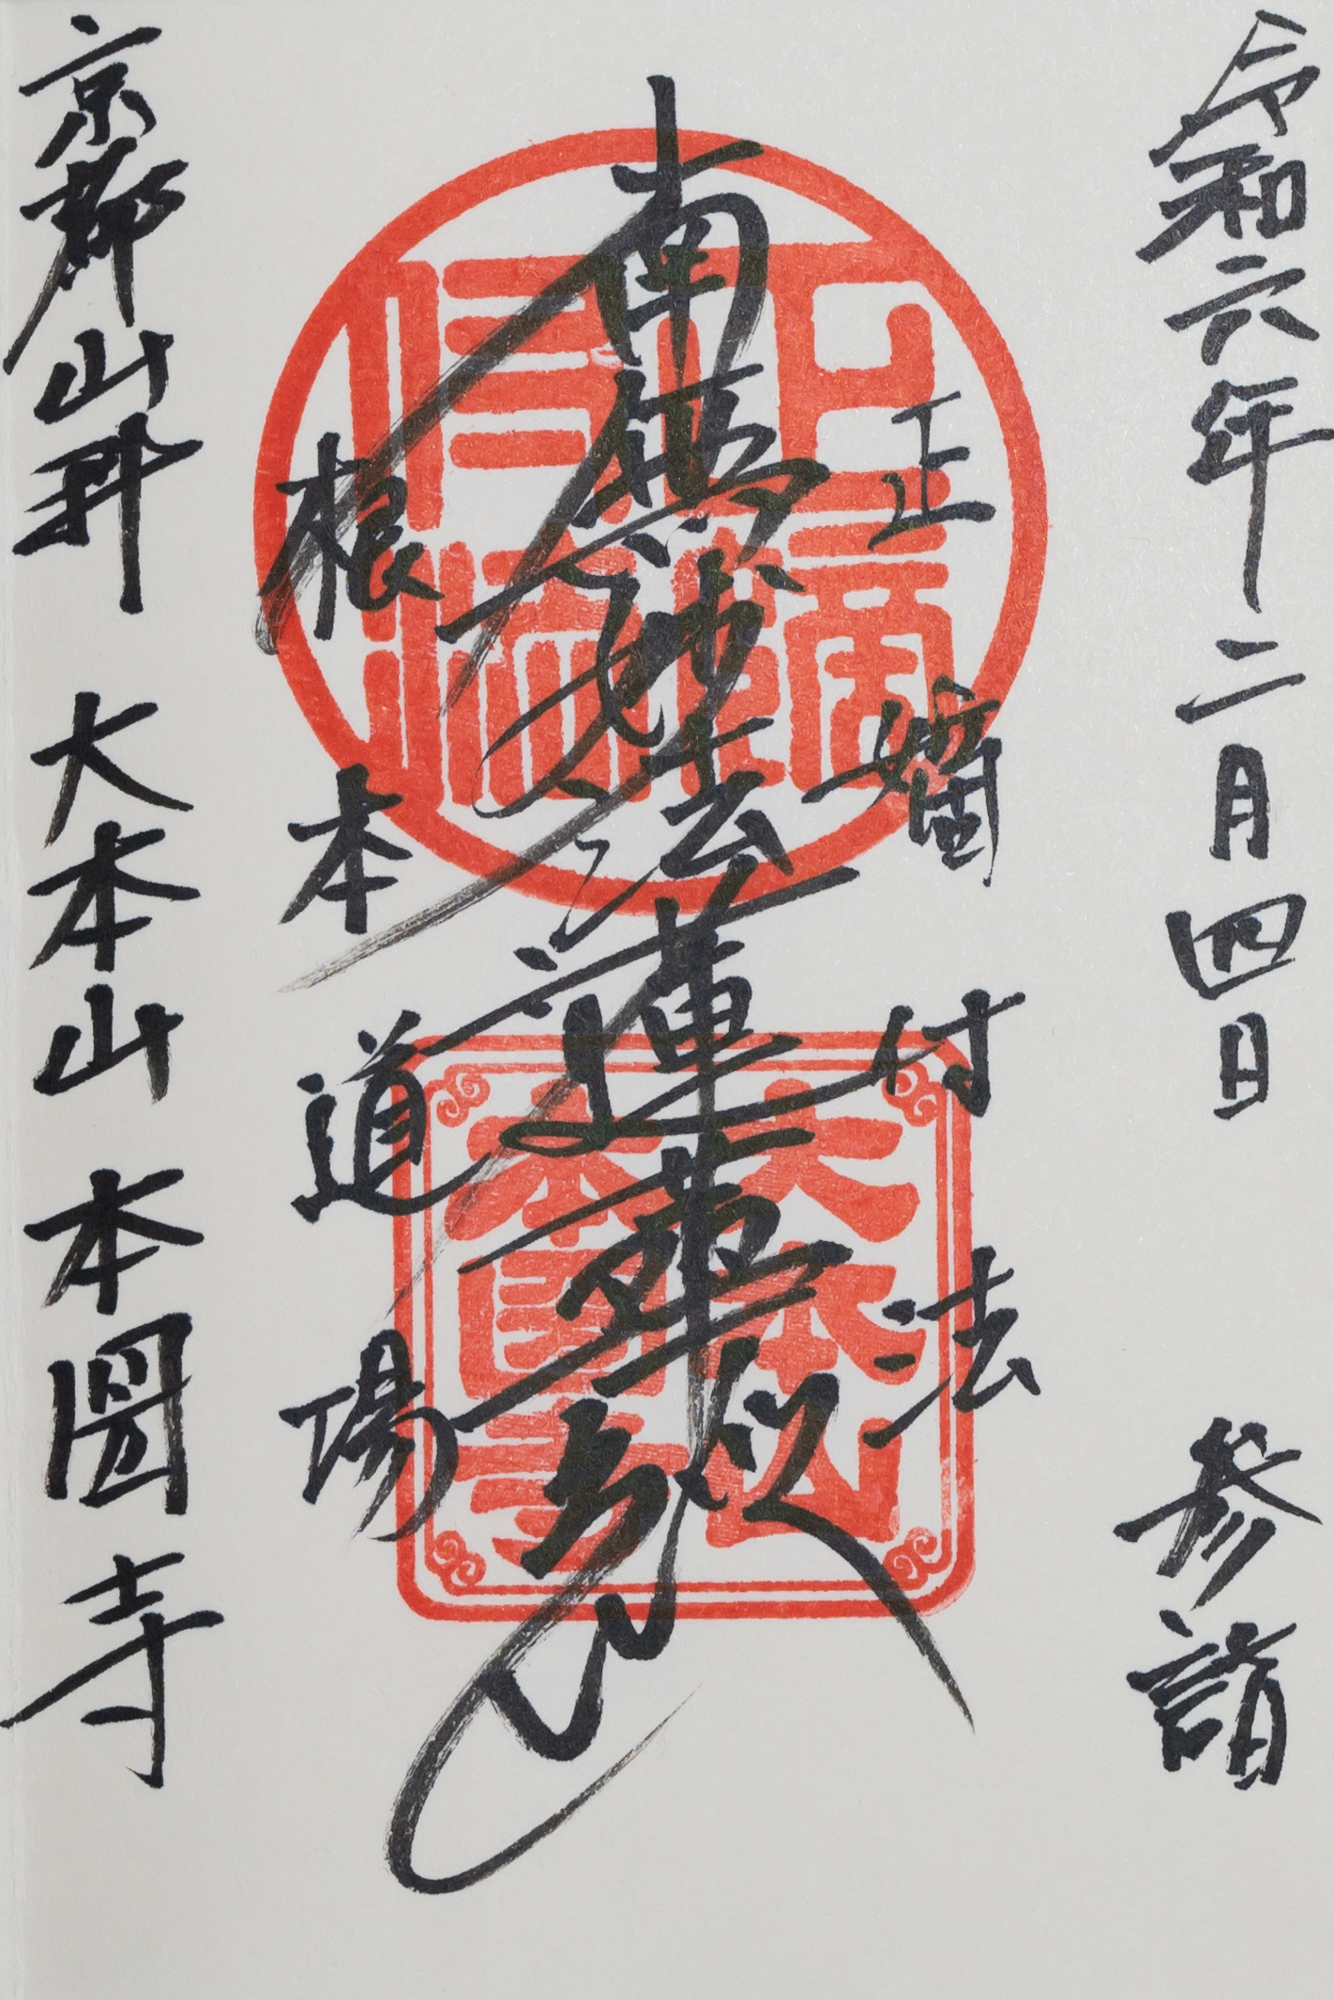 令和六年二月四日 参詣
正嫡付法
南無妙法蓮華経
根本道場
京都山科 大本山 本圀寺
大本山
本圀寺